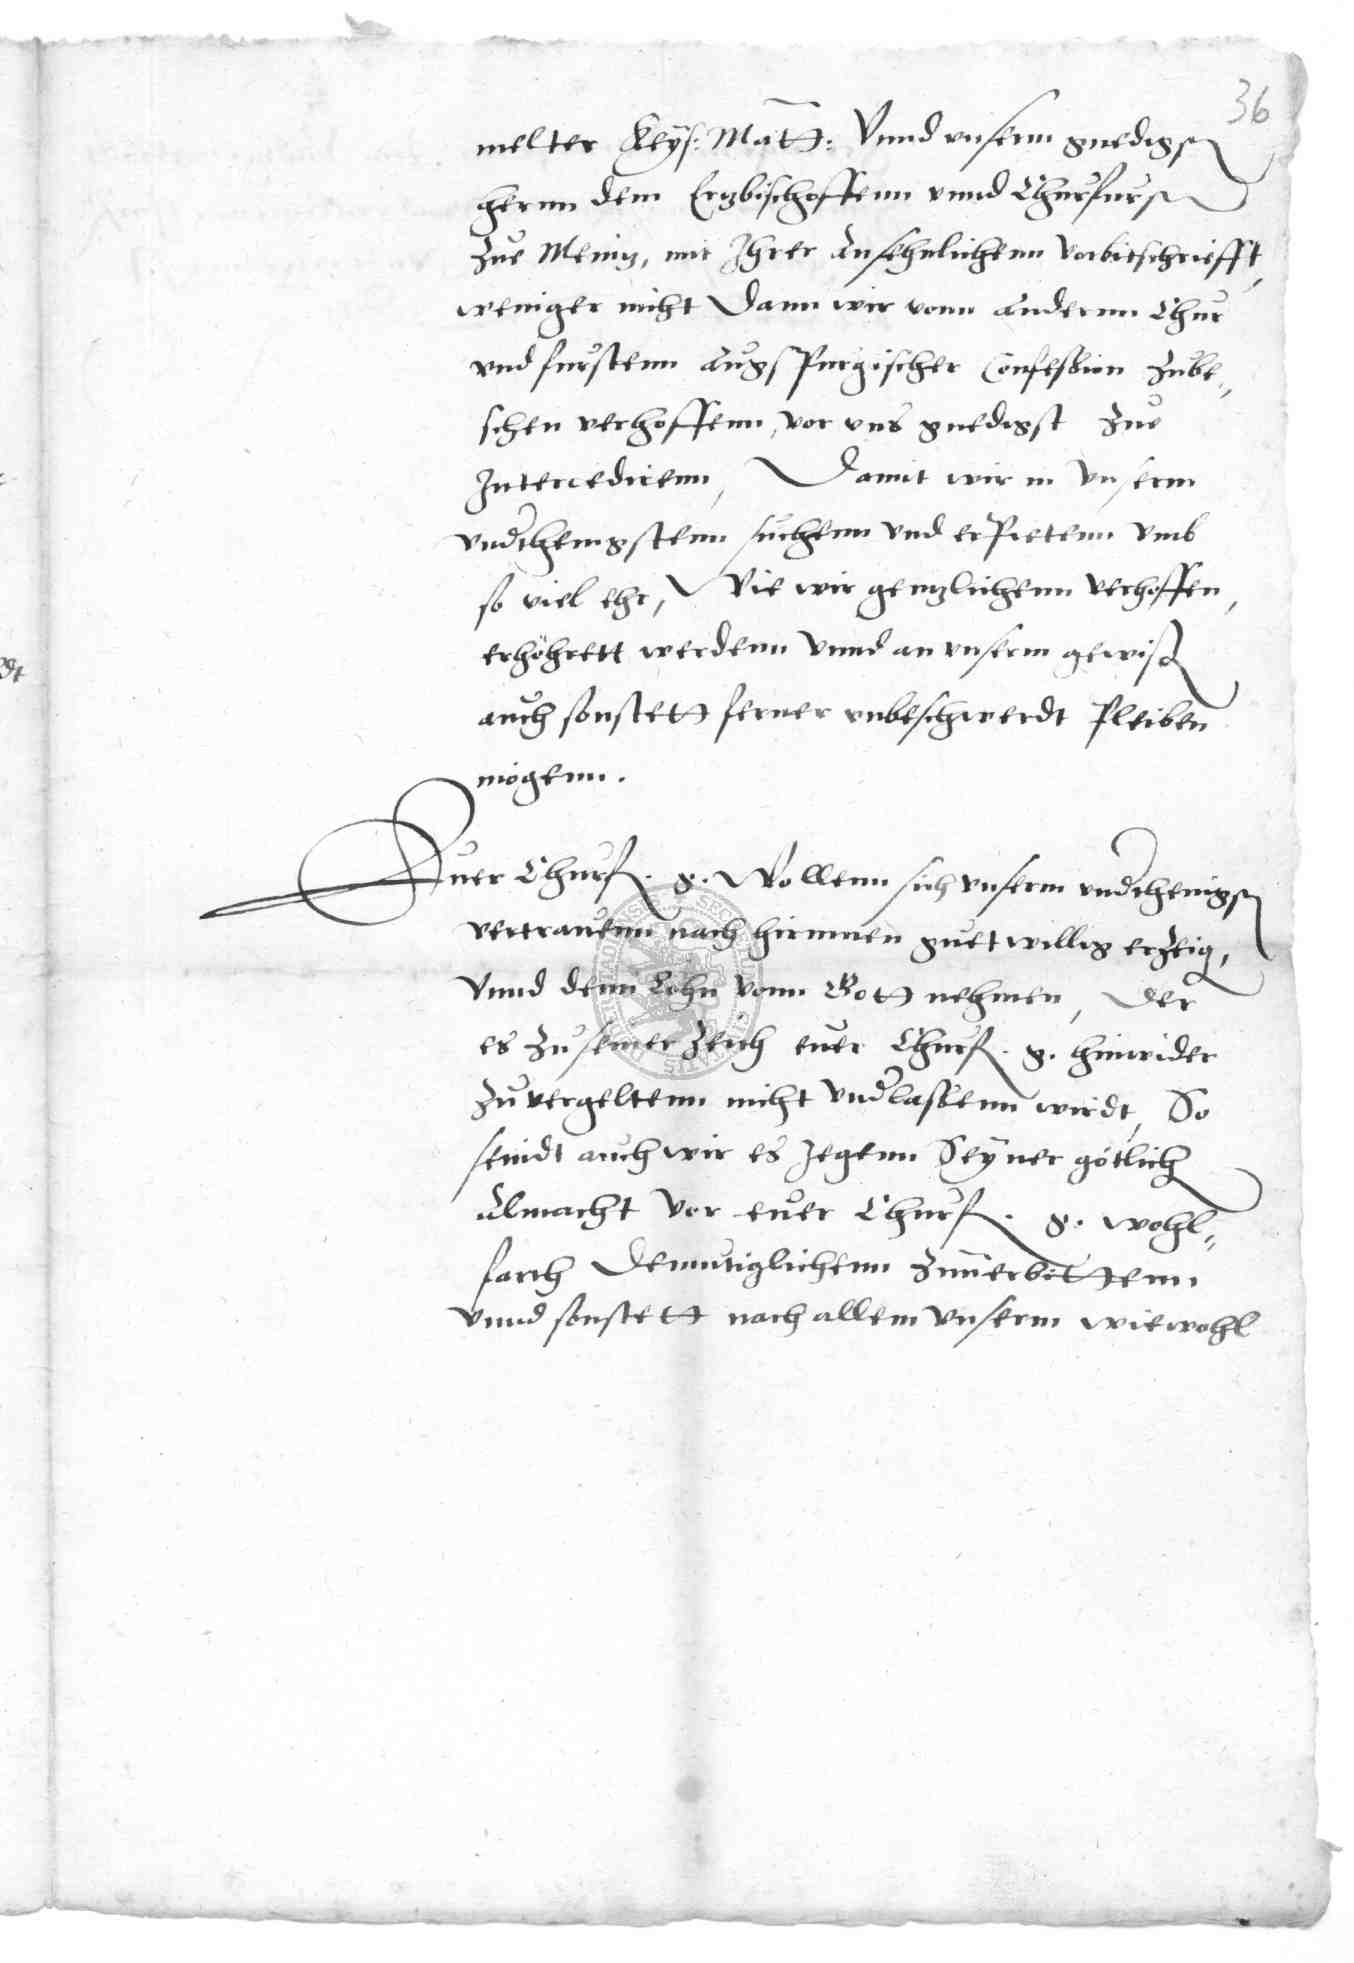 36
melter Key: Matt: Vnnd vnserm gnedigst
hernn dem Ertzbischoffenn vnnd Churfurst
Zue Meintz, mit Ihrer Ansehnlichenn vorbitschriefft,
weniger nicht Dann wir vonn Andernn Chur
vnd furstenn Augspurgischer Confession Zube„
schen verhoffenn, vor vns gnedigst Zue
Intercedirenn, Damit wir in vnserm
vnderthenigstenn suchenn vnd erPietenn vmb
so viel ehr, Wie wir gentzlichenn verhoffen,
erhöhrett werdenn Vnnd an vnserm gewiß
auch sonstett ferner vnbeschwerdt Pleiben
mögenn.
Euer Churf. g. Wollenn sich vnserm vnderthenigst
vertrauenn nach hirinnen guetwillig erzeig,
Vnnd denn Lohn vonn Gott nehmen, Der
es Zu seiner Zeith euer Churf. g. hinwider
Zuvergeltenn nicht vnderlassenn wirdt, So
seindt auch wir es Jegenn Seyner götlich
Almacht Vor euer Churf. g. wohl„
farth Demutiglichenn Zuuerbittenn
Vnnd sonstett nach allem Vnserm wiewohl